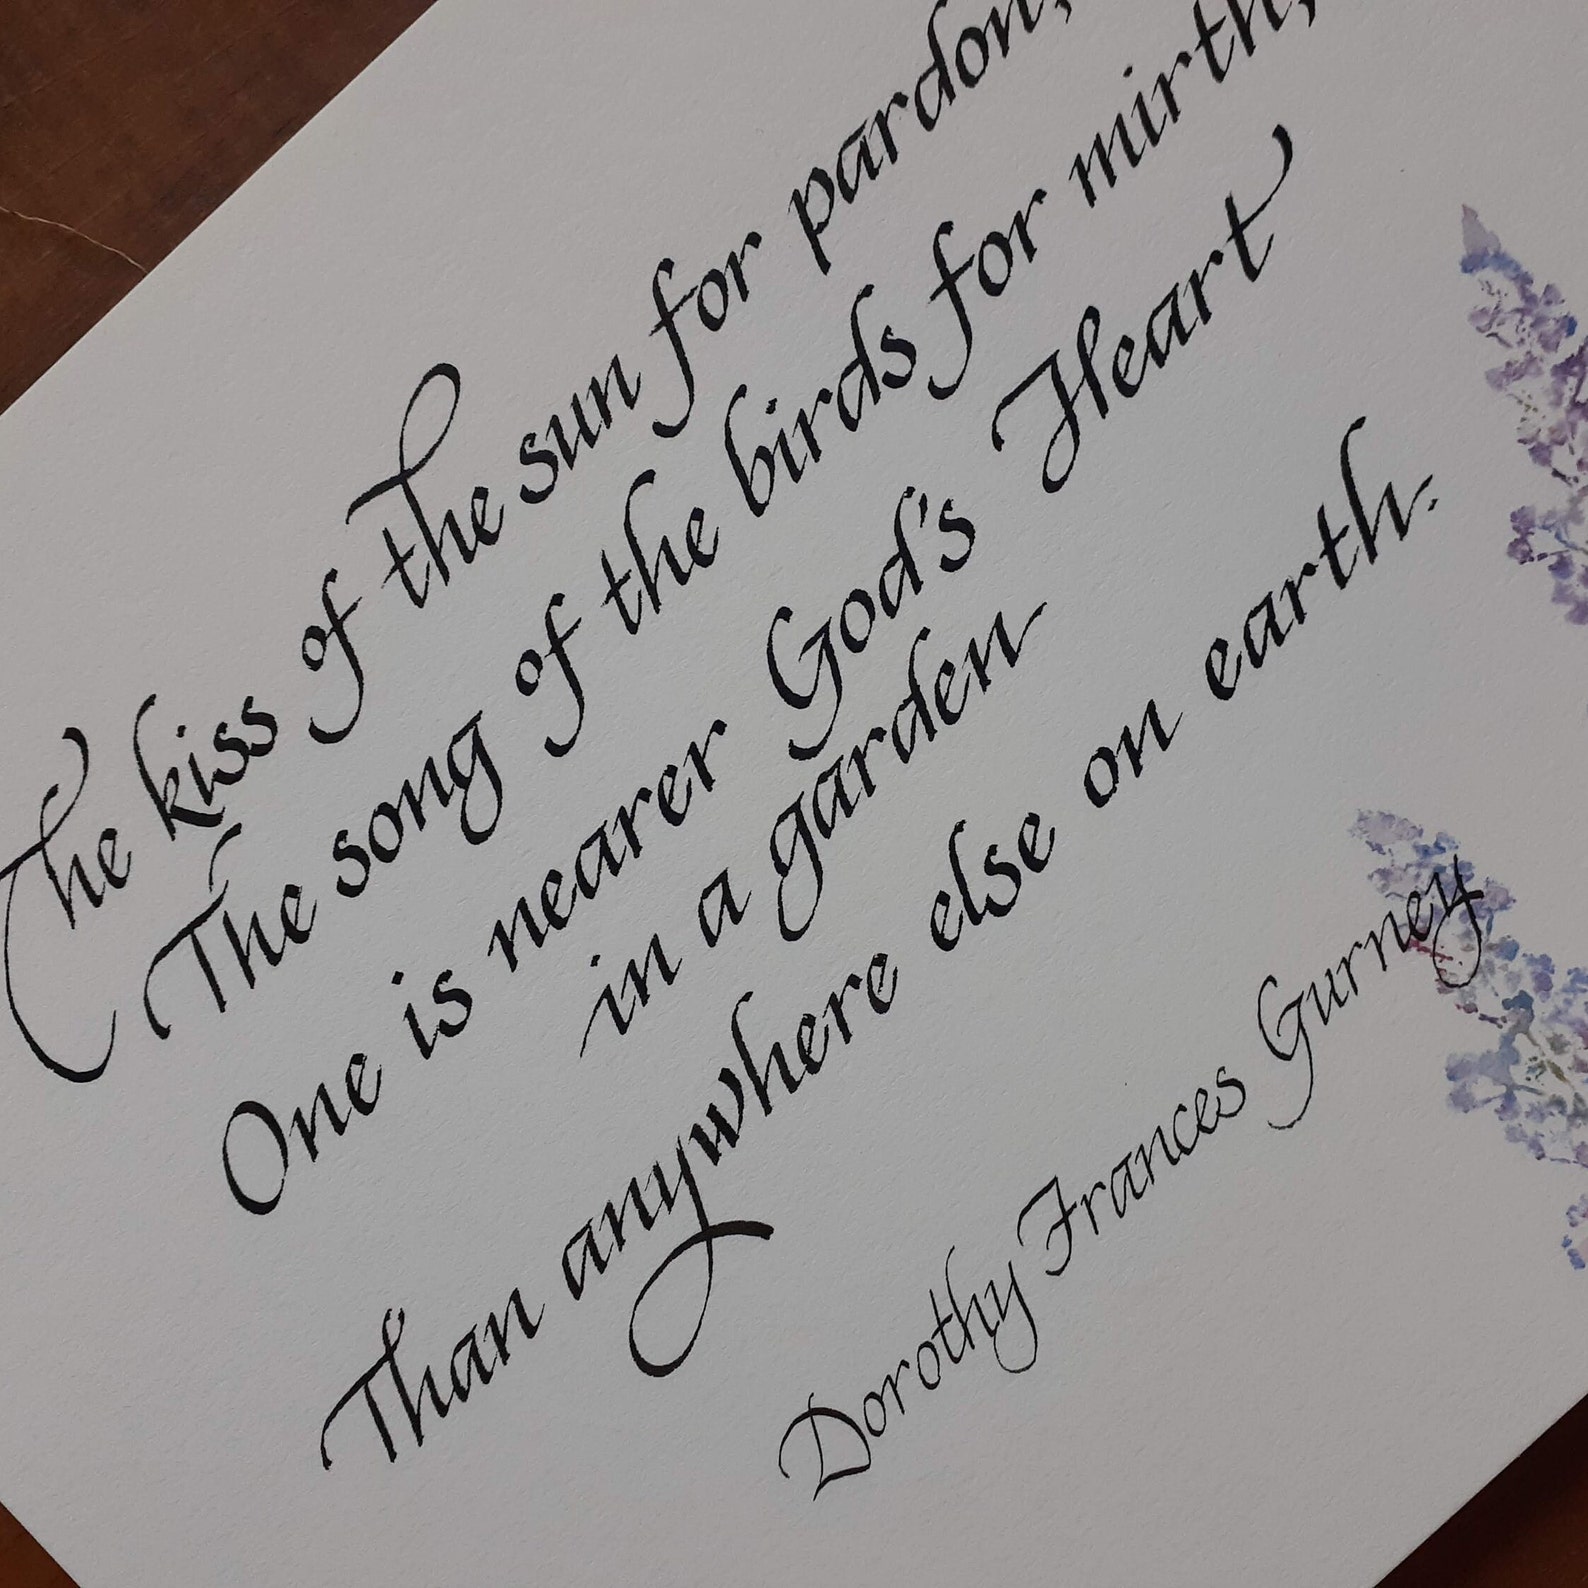 The kiss of the sun for pardon,
The song of the birds for mirth,
One is nearer God's Heart
in a garden
Than anywhere else on earth.
Dorothy Frances Gurney